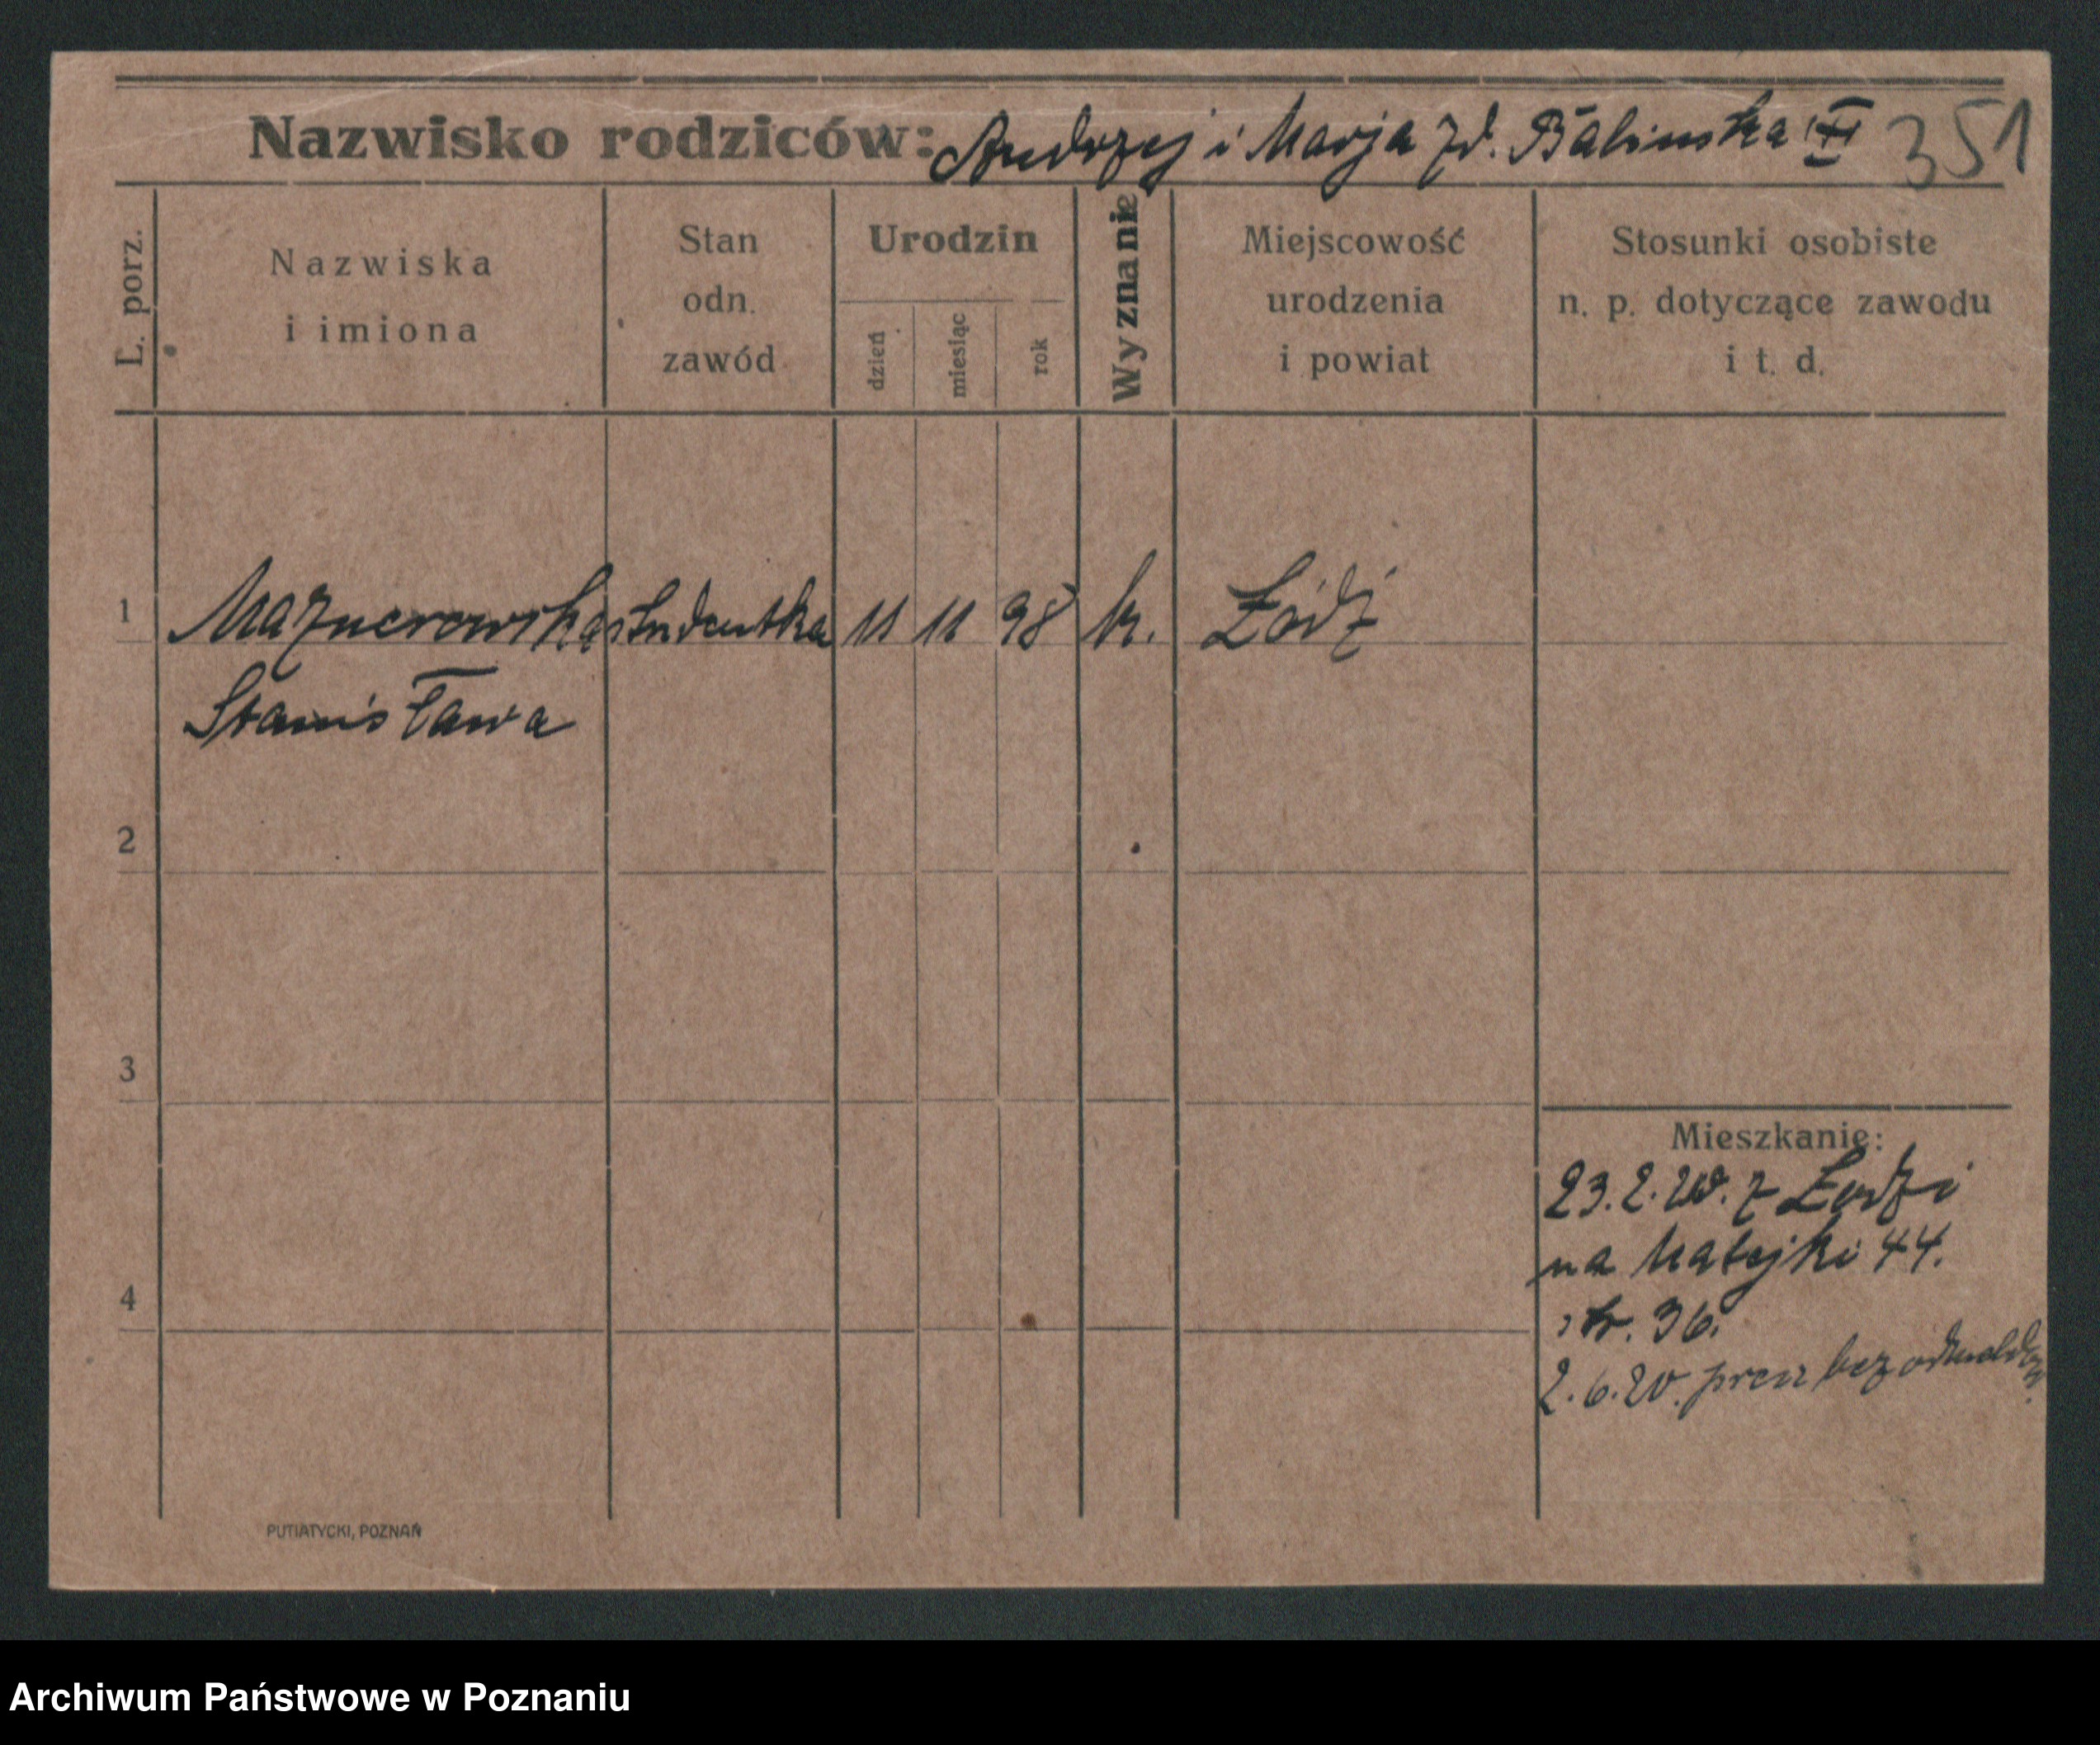 Nazwisko rodziców: Andrzej i Marja zd. Balinska III 351
L. porz.
Nazwiska
i imiona
Stan
odn.
zawód
Urodzin
dzień
miesiąc
rok
Wyznanie
Miejscowość
urodzenia
i powiat
Stosunki osobiste
n. p. dotyczące zawodu
i t. d.
1 Maznerowska studentka 11 11 98 kr. Łódź
Stanisława
2
3
4
Mieszkanie:
23.2.20. z Łodzi
na Matejki 44.
str. 36.
2.6.20. bez
PUTIATYCKI, POZNAŃ
Archiwum Państwowe w Poznaniu